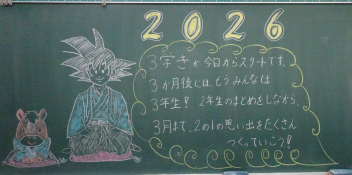 2026
3学きが今日からスタートです。
3か月後には、もうみんなは
3年生！ 2年生のまとめをしながら、
3月まで、2の1の思い出をたくさん
つくっていこう！